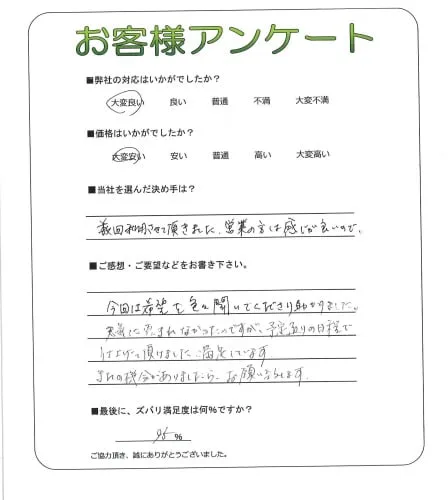 お客様アンケート
■弊社の対応はいかがでしたか?
大変良い 良い 普通 不満 大変不満
■価格はいかがでしたか?
大変安い 安い 普通 高い 大変高い
■当社を選んだ決め手は?
前回利用させて頂きました。営業の方は感じが良いので。
■ご感想・ご要望などをお書き下さい。
今回は希望を色々聞いてくださり助かりました。
天気に恵まれなかったのですが、予定通りの日程で
仕上げて頂けました。満足しています
またの機会がありましたら、お願い致します。
■最後に、ズバリ満足度は何%ですか?
95 %
ご協力頂き、誠にありがとうございました。